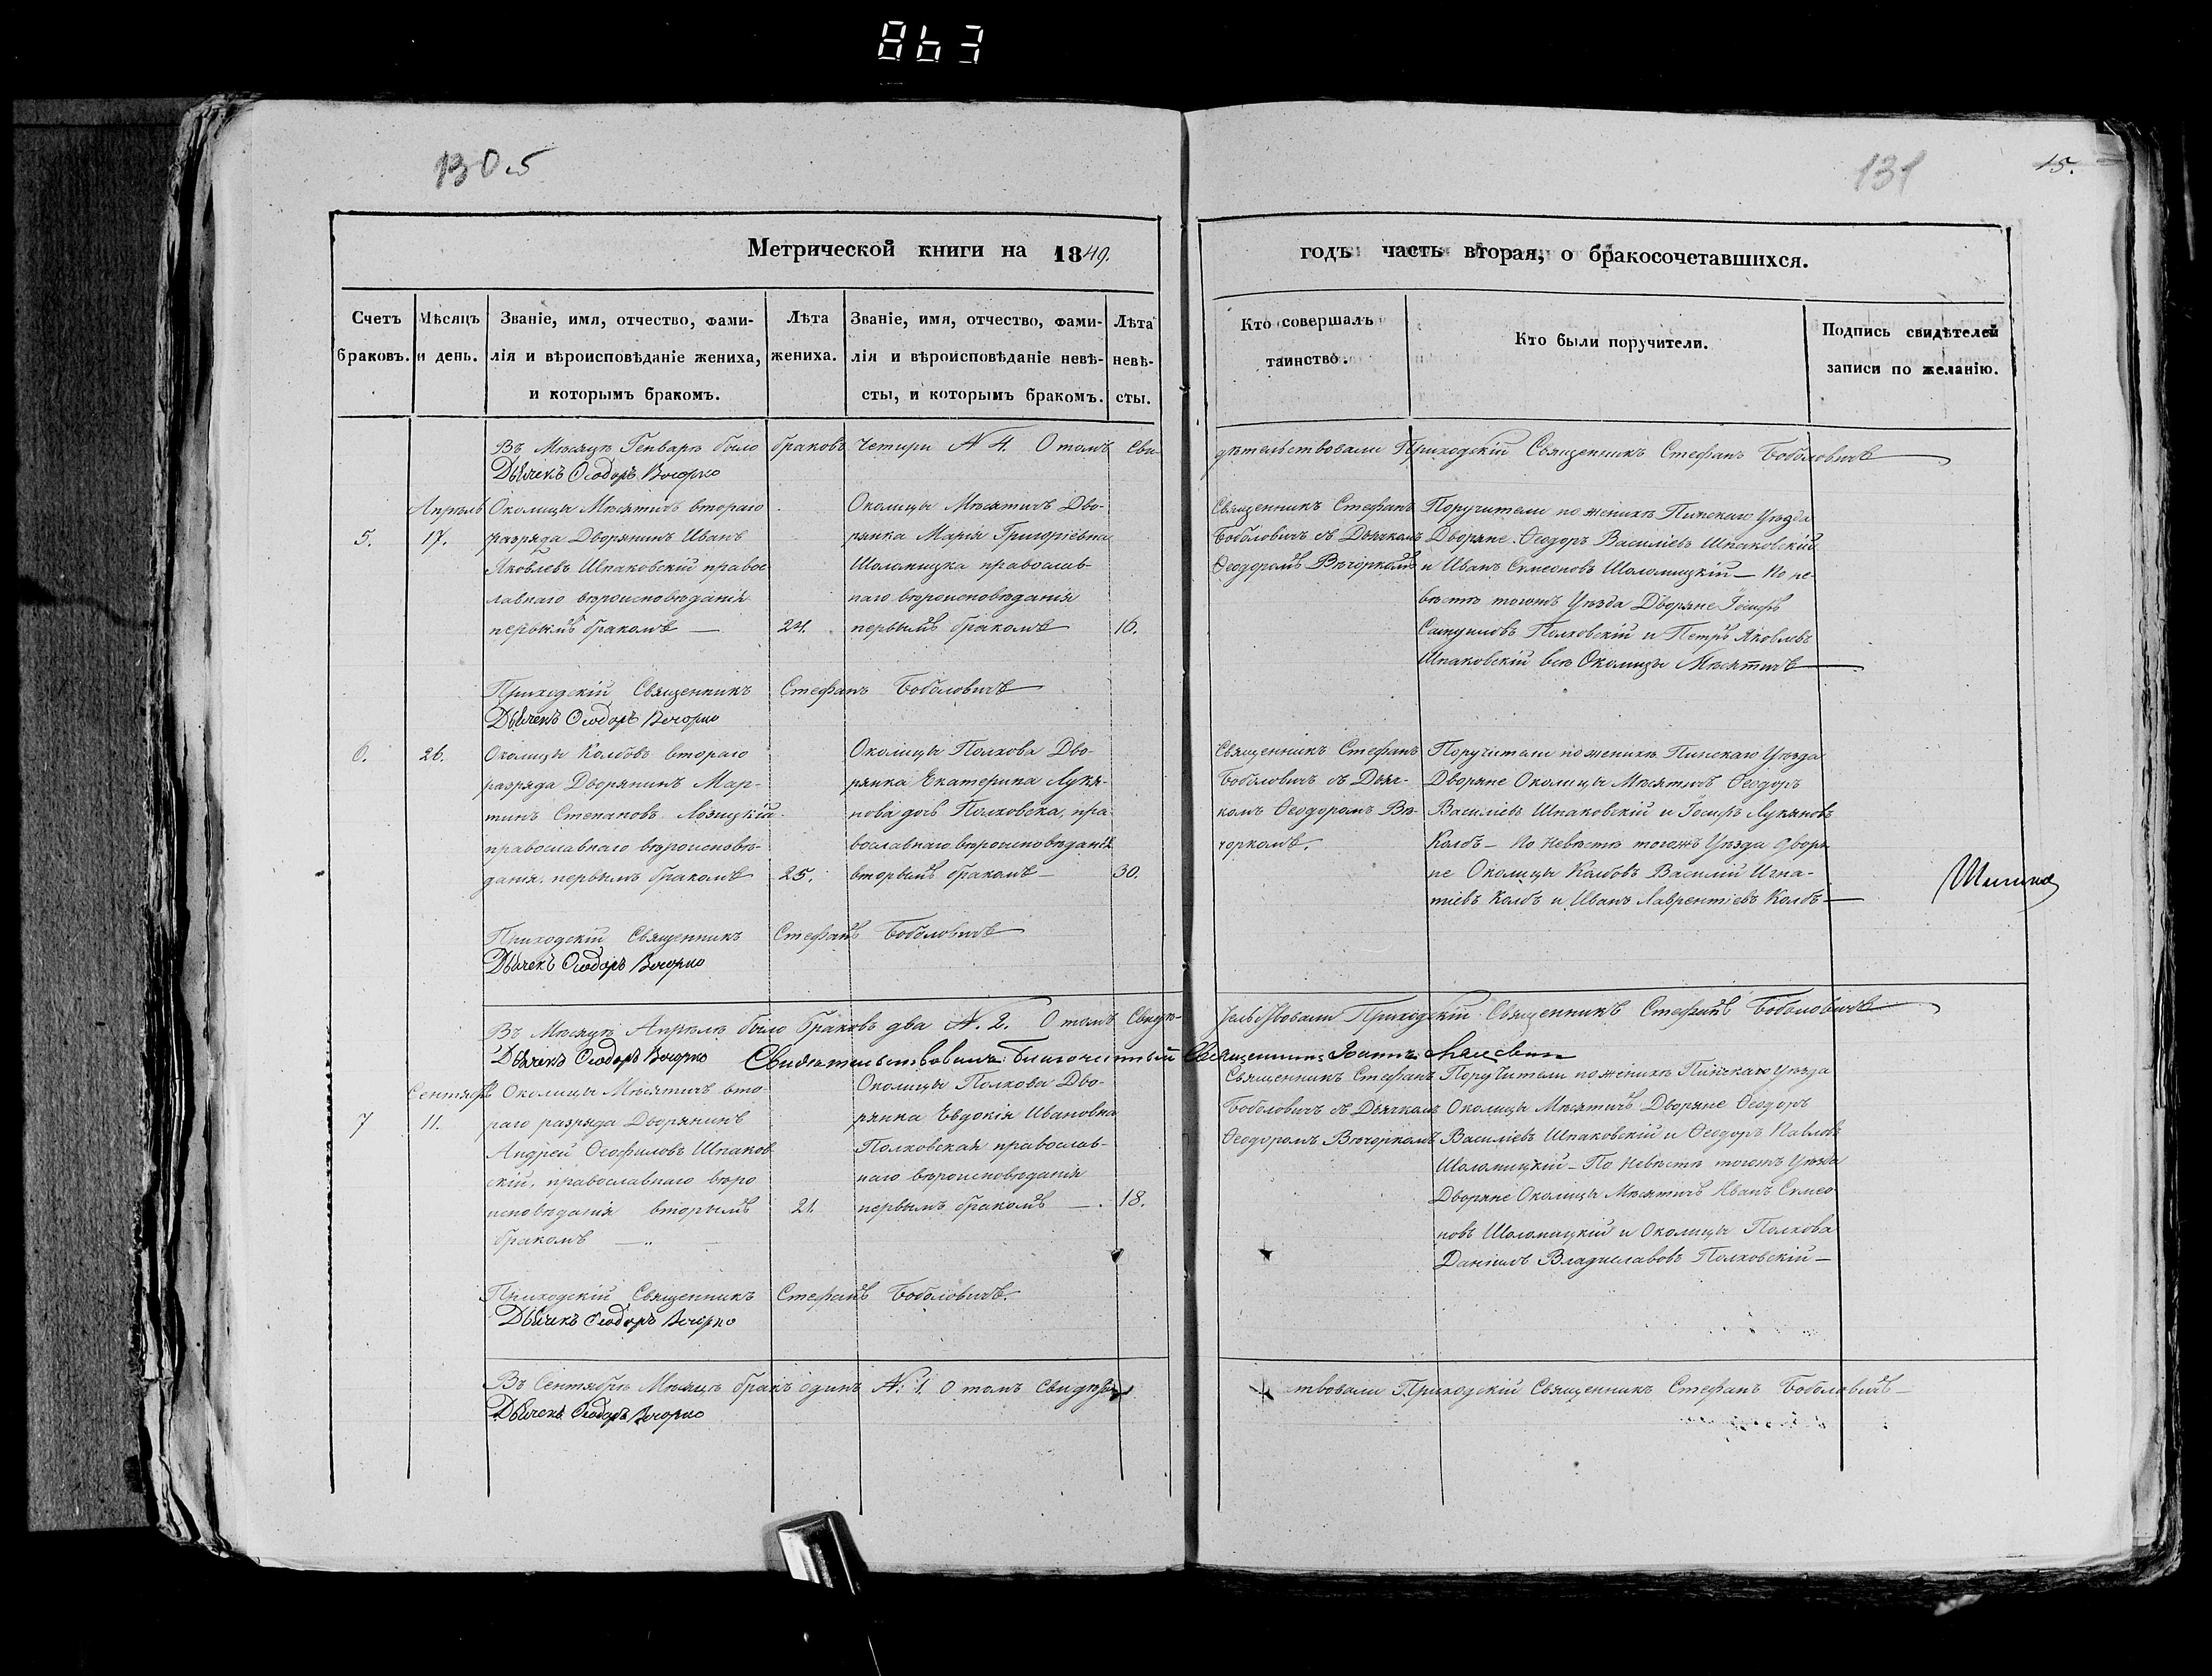 863
130.5
131
15.
Метрической книги на 1849.
годъ часть вторая, о бракосочетавшихся.
Счетъ браковъ.
Мѣсяцъ и день.
Званіе, имя, отчество, фами-
лія и вѣроисповѣданіе жениха,
и которымъ бракомъ.
Лѣта жениха.
Званіе, имя, отчество, фами-
лія и вѣроисповѣданіе невѣ-
сты, и которымъ бракомъ.
Лѣта невѣ-
сты.
Кто совершалъ
таинство.
Кто были поручители.
Подпись свидѣтелей
записи по желанію.
Въ Мѣсяцѣ Генварѣ было браковъ четыри N 4. О томъ сви-
дѣтельствовали Приходскій Священникъ Стефанъ Боболовичъ
Дьячекъ Ѳеодоръ Вечорко
5.
Апрѣль
17.
Околицы Мѣсятичъ втораго
разряда Дворянинъ Иванъ
Яковлевъ Шпаковскій правос
лавнаго вѣроисповѣданія
первымъ бракомъ —
24.
Околицы Мѣсятичъ Дво-
рянка Марія Григоріевна
Шоломицка православ-
наго вѣроисповѣданія
первымъ бракомъ
16.
Священникъ Стефанъ
Боболовичъ съ Дьячкомъ
Ѳеодоромъ Вѣчоркомъ
Поручители по женихѣ Пинскаго Уѣзда
Дворяне Ѳеодоръ Василіевъ Шпаковскій
и Иванъ Симеоновъ Шоломицкій — По не-
вѣстѣ тогожъ Уѣзда Дворяне Іосифъ
Полховскій и Петръ Яковлевъ
Шпаковскій всѣ Околицы Мѣсятичъ
Приходскій Священникъ Стефанъ Боболовичъ
Дьячекъ Ѳеодоръ Вечорко
6.
26.
Околицы Колбовъ втораго
разряда Дворянинъ Мар-
тинъ Степановъ Лозицкій
православнаго вѣроисповѣ-
данія первымъ бракомъ
25.
Околицы Полхова Дво-
рянка Екатерина Лукя-
нова дочь Полховска, пра
вославнаго вѣроисповѣданія
вторымъ бракомъ —
30.
Священникъ Стефанъ
Боболовичъ съ Дьяч-
комъ Ѳеодоромъ Вѣ-
чоркомъ.
Поручители по женихѣ Пинскаго Уѣзда
Дворяне Околицы Мѣсятичъ Ѳеодоръ
Василіевъ Шпаковскій и Іосифъ Лукяновъ
Колбъ — По Невѣстѣ тогожъ Уѣзда дворя
не Околицы Колбовъ Василій Игна-
тіевъ Колбъ и Иванъ Лаврентіевъ Колбъ —
Приходскій Священникъ Стефанъ Боболовичъ
Дьячекъ Ѳеодоръ Вечорко
Въ Мѣсяцѣ Апрѣлѣ было браковъ два N. 2. О томъ Свидѣ-
тельствовали Приходскій Священникъ Стефанъ Боболовичъ
Дьячекъ Ѳеодоръ Вечорко
Свидѣтельствовалъ Благочинный Священникъ Іоаннъ
7
Сентябрь
11.
Околицы Мѣсятичъ вто-
раго разряда Дворянинъ
Андрей Ѳеофиловъ Шпаков
скій, православнаго вѣро
исповѣданія вторымъ
бракомъ —
21.
Околицы Полхова Дво-
рянка Евдокія Ивановна
Полховская православ-
наго вѣроисповѣданія
первымъ бракомъ —.
18.
Священникъ Стефанъ
Боболовичъ съ Дьячкомъ
Ѳеодоромъ Вѣчоркомъ
Поручители по женихѣ Пинскаго Уѣзда
Околицы Мѣсятичъ Дворяне Ѳеодоръ
Василіевъ Шпаковскій и Ѳеодоръ Павловъ
Шоломицкій — По Невѣстѣ тогожъ Уѣзда
Дворяне Околицы Мѣсятичъ Иванъ Симео
новъ Шоломицкій и Околицы Полхова
Даніилъ Владиславовъ Полховскій —
Приходскій Священникъ Стефанъ Боболовичъ.
Дьячекъ Ѳеодоръ Вечорко
Въ Сентябрѣ Мѣсяцѣ бракъ одинъ N: 1. О томъ Свидѣтель
ствовали Приходскій Священникъ Стефанъ Боболовичъ —
Дьячекъ Ѳеодоръ Вечорко